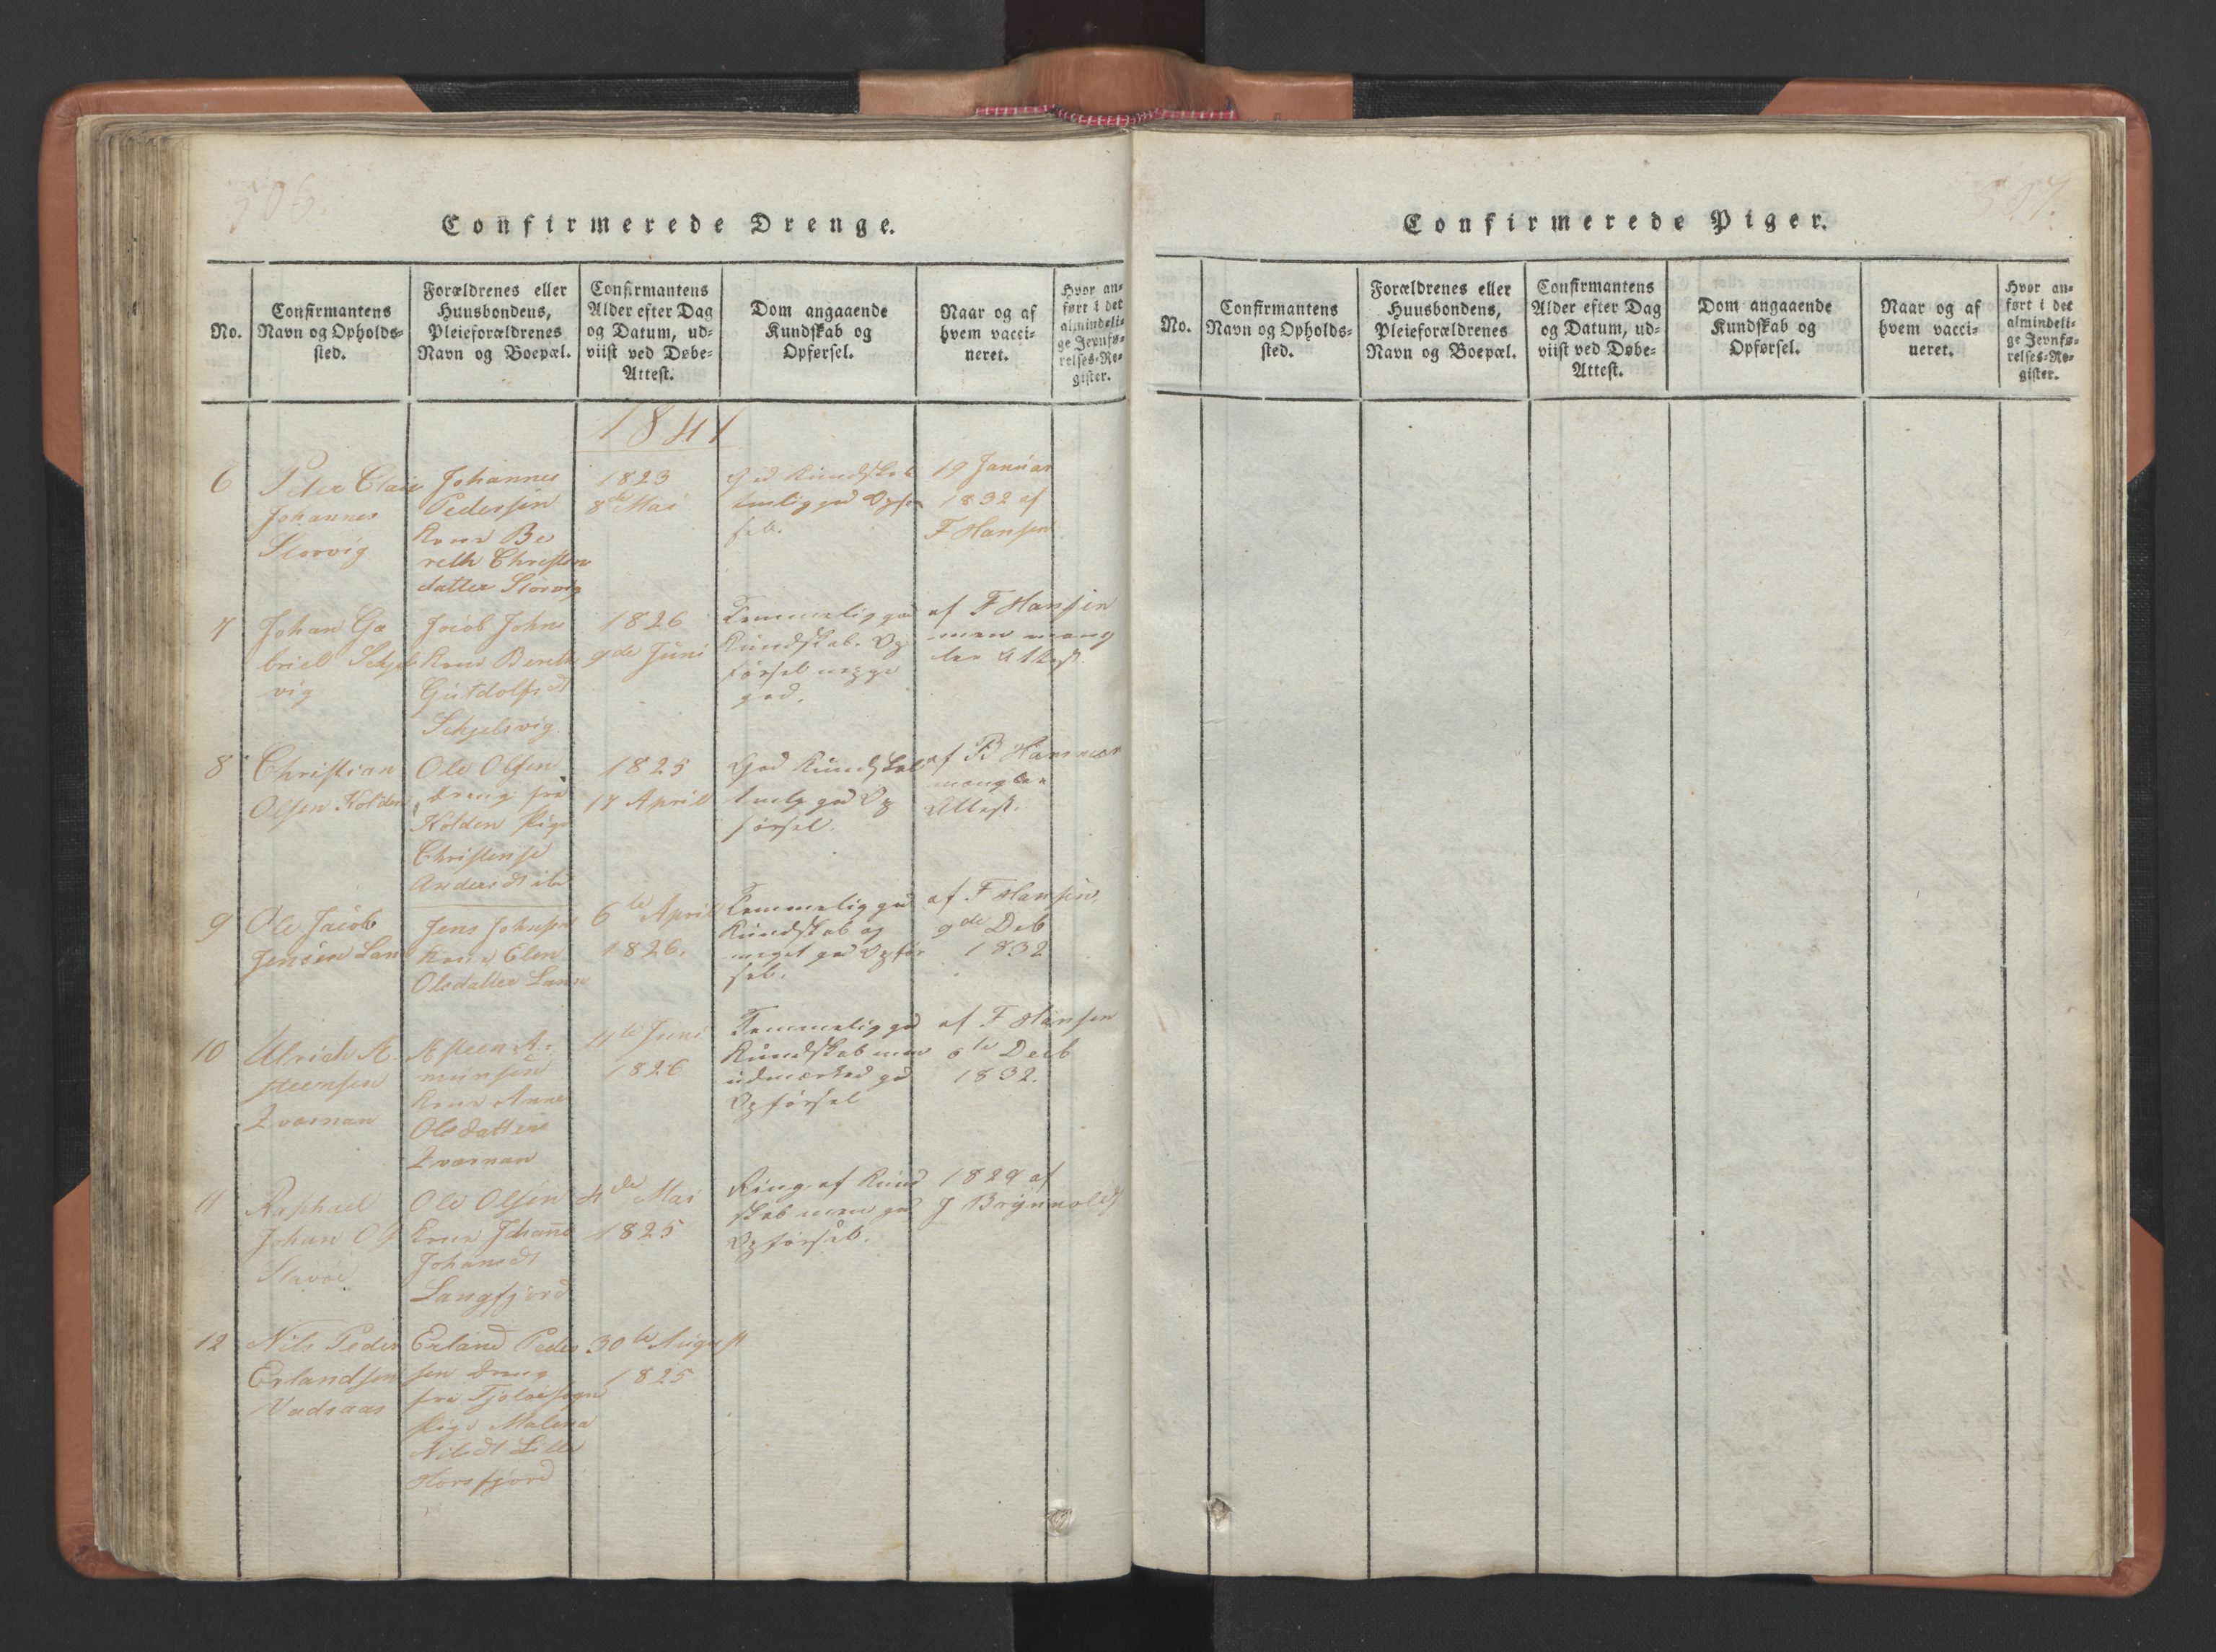 506.
Confirmerede Drenge.
No.
Confirmantens
Navn og Opholds-
sted.
Forældrenes eller
Huusbondens,
Pleieforældrenes
Navn og Boepæl.
Confirmantens
Alder efter Dag
og Datum, ud-
viist ved Døbe-
Attest.
Dom angaaende
Kundskab og
Opførsel.
Naar og af
hvem vacci-
neret.
Hvor an-
ført i det
almindeli-
ge Jevnfø-
relses-Re-
gister.
1841
6
Peter Claus
Johannes
Storvig
Johannes
Pedersen
Kone Be
reth Christen
datter Storvig
1823
8de Mai
God Kundskab
temlig god Opfør
sel.
19 Januar
1832 af
F Hansen
7
Johan Ga
briel Schjels
vig
Jacob Johns
Kone Bereth
Schjelsvig
1826
9de Juni
Temmelig god
Kundskab. Op
førsel neppe
god.
af F Hansen
men mang
ler Attest.
8
Christian
Olsen Holden
Ole Olsen
dreng fra
Holden Pige
Christense
Andersdt ibd
1825
17 April
God Kundskab
temlg god Op
førsel.
af
mangler
Attest.
9
Ole Jacob
Jensen
Jens Johnsen
Kone Elen
Olsdatter
6te April
1826.
Temmelig god
Kundskab og
meget god Opfør
sel.
af F Hansen
9de Deb
1832
10
Ulrich A-
steensen
Qvarnan
Asteen A-
munsen
Kone Anne
Olsdatter
Qvarnan
4te Juni
1826
Temmelig god
Kundskab men
udmærked god
Opførsel
af F Hansen
6te Decb
1832.
11
Raphael
Johan
Ole Olsen
Kone Johanna
Johansdt
Langfjord
4de Mai
1825
Ringe af Kund
skab men god
Opførsel.
1829 af
J Brynnolds
12
Nils Peder
Erlandsen
Vadsaas
Erland Peder
sen dreng
fra Tjøløesogn
Pige Malena
Nilsdt Lille
Horsfjord
30te August
1825
507.
Confirmerede Piger.
No.
Confirmantens
Navn og Opholds-
sted.
Forældrenes eller
Huusbondens,
Pleieforældrenes
Navn og Boepæl.
Confirmantens
Alder efter Dag
og Datum, ud-
viist ved Døbe-
Attest.
Dom angaaende
Kundskab og
Opførsel.
Naar og af
hvem vacci-
neret.
Hvor an-
ført i det
almindeli-
ge Jevnfø-
relses-Re-
gister.